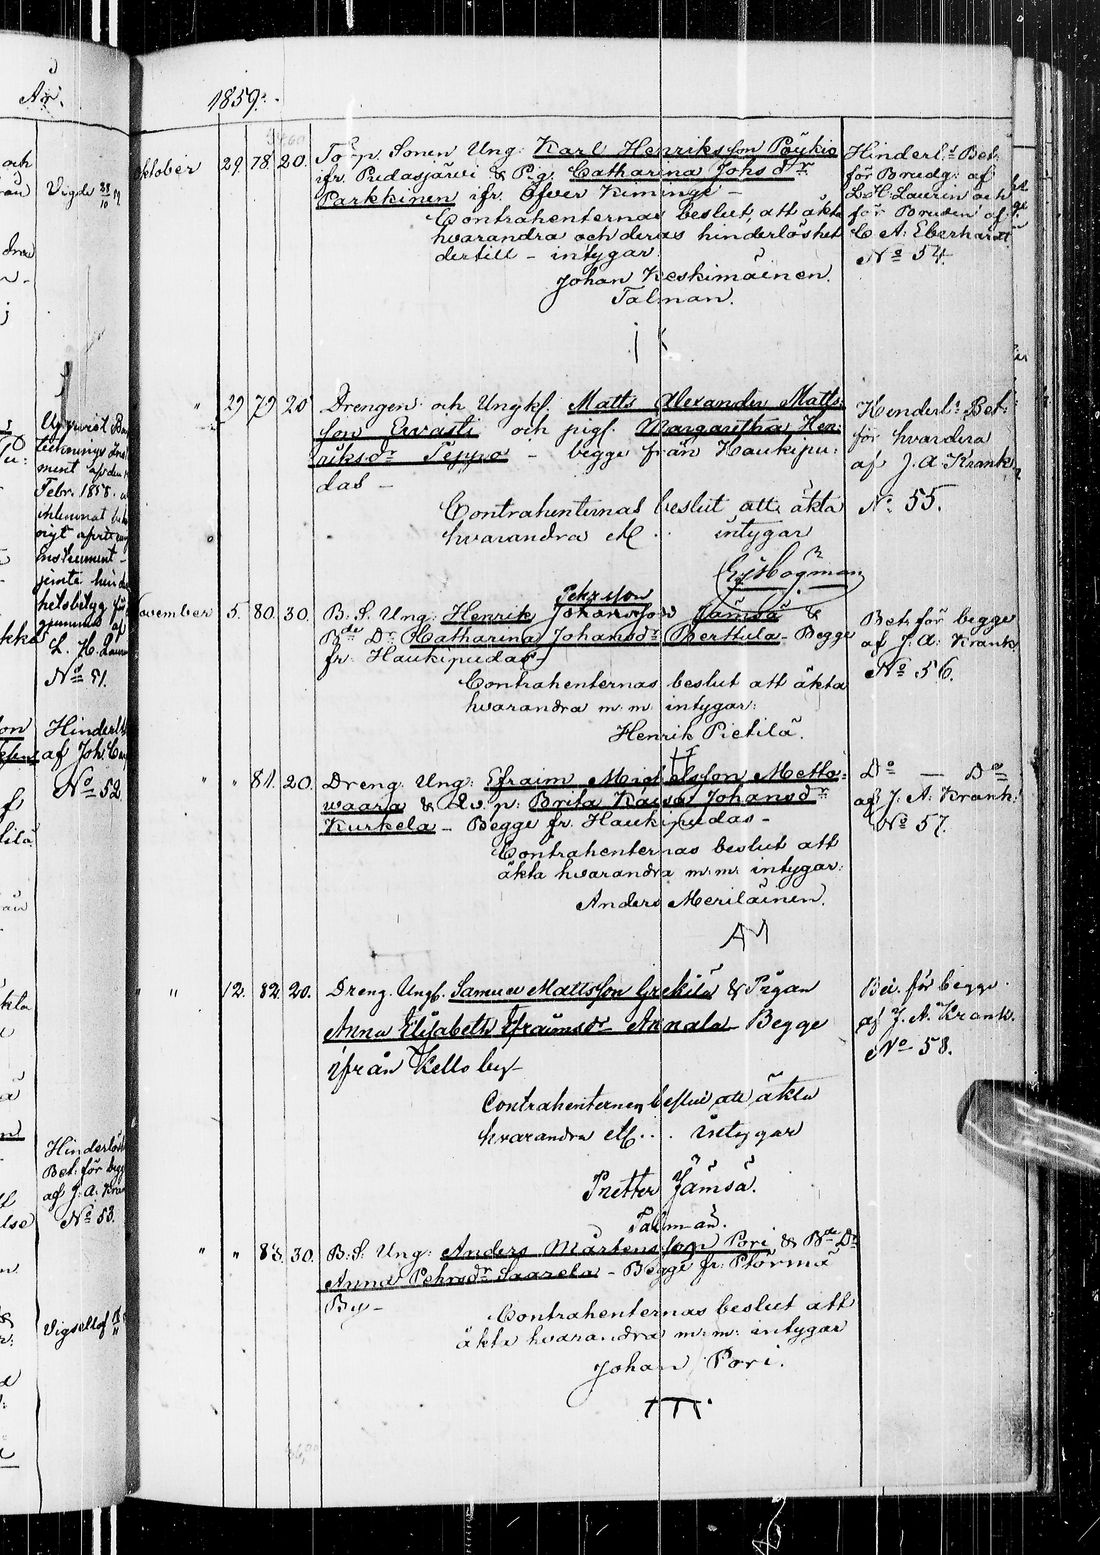 År.
1859.
Oktober 29. 78. 20. Torp. Sonen Ung: Karl Henriksson Pöykiö
ifr. Pudasjärvi & P.g. Catharina Johsdr
Parkkinen ifr. Öfver Kiminge –
Contrahenternas beslut, att äkta
hvarandra och deras hinderlöshet
dertill – intygar
Johan Keskimäinen.
Talman.
Hinderl:s Bet:
för Brudg: af
L. H. Laurin och
för Bruden af
C. A. Eberhardt
No 54.
" 29 79 20 Drengen och Ungkf. Matts Alexander Matts-
son Ervasti och pigf. Margaretha Hen-
riksdr Teppo – begge från Haukipu-
das –
Contrahenternas beslut att äkta
hvarandra etc .. intygar
Hinderl:s Bet:
för hvardera
af J. A. Krank
No 55.
November 5. 80. 30. B. S. Ung: Henrik Johansson Jämsä &
Pehrsson
Bde Dr Catharina Johansdr Berttula – Begge
fr. Haukipudas –
Contrahenternas beslut att äkta
hvarandra m: m: intygar:
Henrik Pietilä.
Bet. för begge
af J. A. Krank
No 56.
" " 81. 20. Dreng. Ung: Efraim Michelsson Metto-
waara & Qv. p: Brita Kaisa Johansdr
Kurkela – Begge fr. Haukipudas –
Contrahenternas beslut att
äkta hvarandra m: m: intygar:
Anders Meriläinen.
AM
Do — Do
af J. A. Krank.
No 57.
" " 12. 82. 20. Dreng. Ungk. Samuel Mattsson Grekilä & Pigan
Anna Elisabeth Efraimsdr Annala Begge
ifrån Kello by –
Contrahenternas beslut att äkta
hvarandra etc .. intygar
Pretter Jämsä.
Talman.
Bet. för begge
af J. A. Krank.
No 58.
" " 83. 30. B. S. Ung: Anders Mårtensson Pori & Bde Dr
Anna Pehrsdr Saarela – Begge fr.
By –
Contrahenternas beslut att
äkta hvarandra m: m: intygar
Johan Pori.
Vigde 28/10 59
Febr. 1858.
No 51.
Hinderl
af Joh.
No 52
Hinderlös
Bet: för begg
af J. A. Kran
No 53.